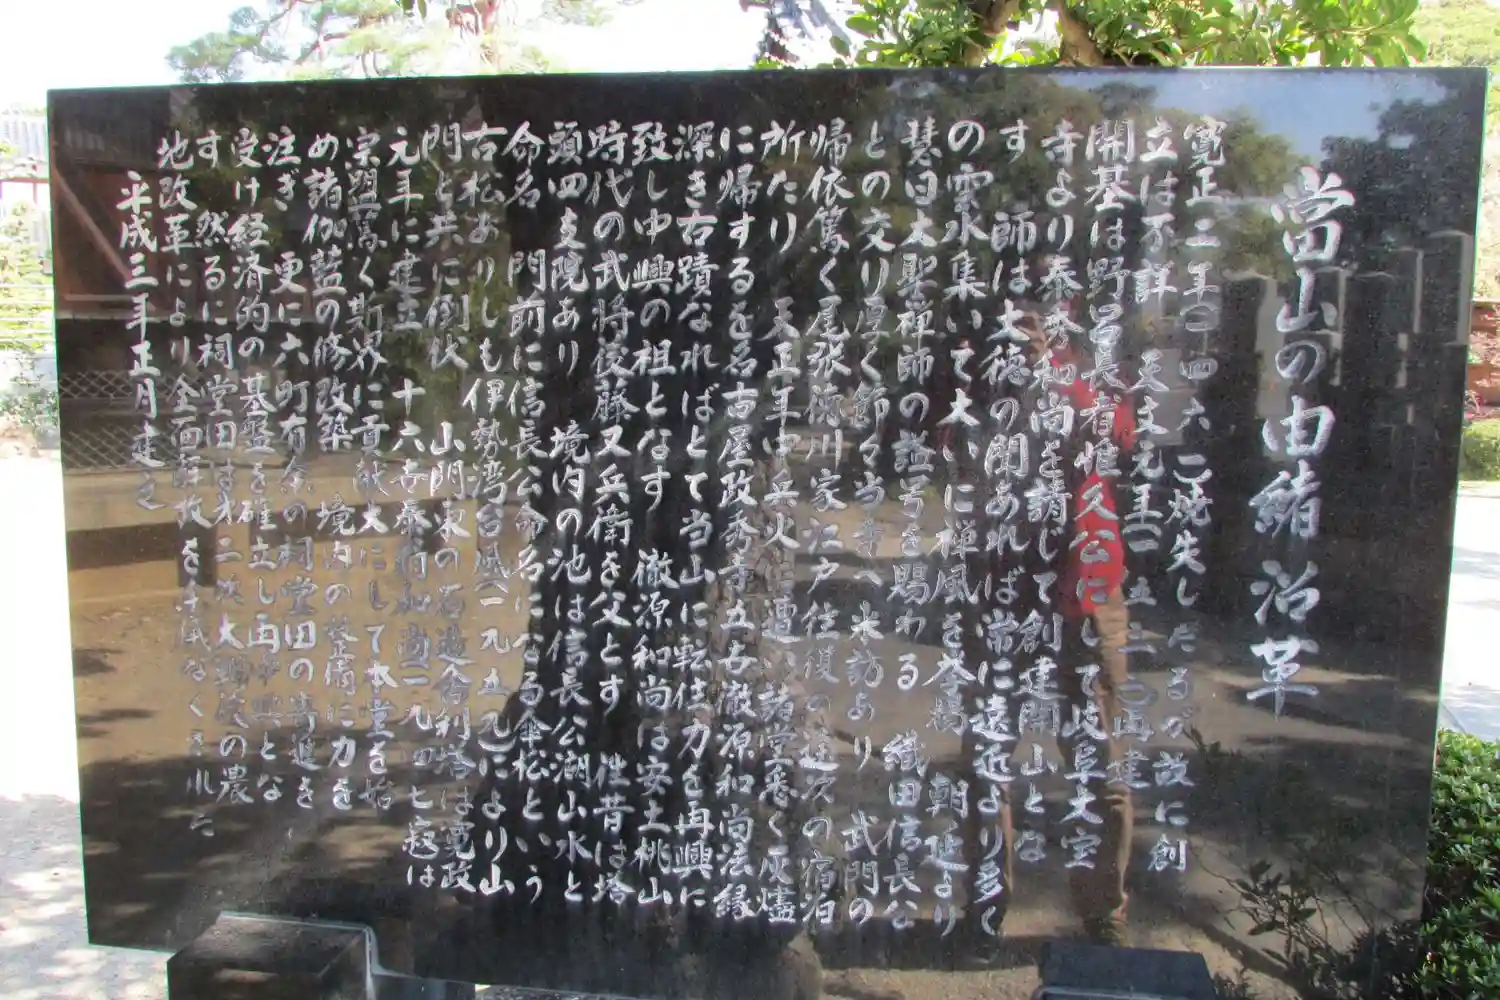 當山の由緒沿革
寛正二年(一四六一)焼失したるが故に創
立は不詳 天文元年(一五三二)再建
開基は野呂長者惟久公にして岐阜大宝
寺より泰秀和尚を請じて創建開山とな
す 師は大徳の聞あれば常に遠近より多く
の雲水集いて大いに禅風を挙揚 朝廷より
慧日大聖禅師の諡号を賜わる 織田信長公
との交り厚く節々当寺へ来訪あり 武門の
帰依篤く尾張徳川家江戸往復の途次の宿泊
所たり 天正年中兵火に遭い諸堂悉く灰燼
に帰するを名古屋政秀寺五古徹源和尚法縁
深き古蹟なればとて当山に転住力を再興に
致し中興の祖となす 徹源和尚は安土桃山
時代の武将後藤又兵衛を父とす 往昔は塔
頭四支院あり 境内の池は信長公湖山水と
命名 門前に信長公命名になる傘松という
古松ありしも伊勢湾台風(一九五九)により山
門と共に倒伏 山門東の石造舎利塔は寛政
元年に建立 十六世泰 和尚(一九四七寂)は
宗盟篤く斯界に貢献大にして本堂を始
め諸伽藍の修改築 境内の整備に力を
注ぎ 更に六町有余の祠堂田の寄進を
受け経済的の基盤を確立し再中興とな
す 然るに祠堂田は才二次大戦後の農
地改革により全面解放を余儀なくされた
平成三年正月建之